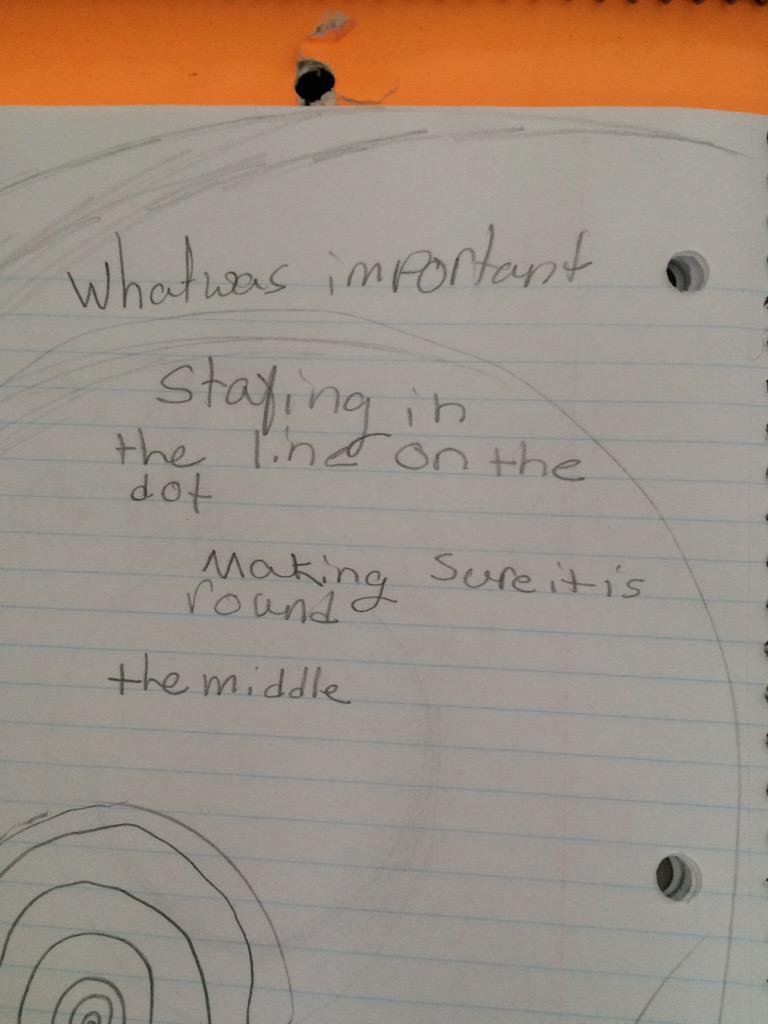 What was important
Staying in
the line on the
dot
Making Sure it is
round
the middle